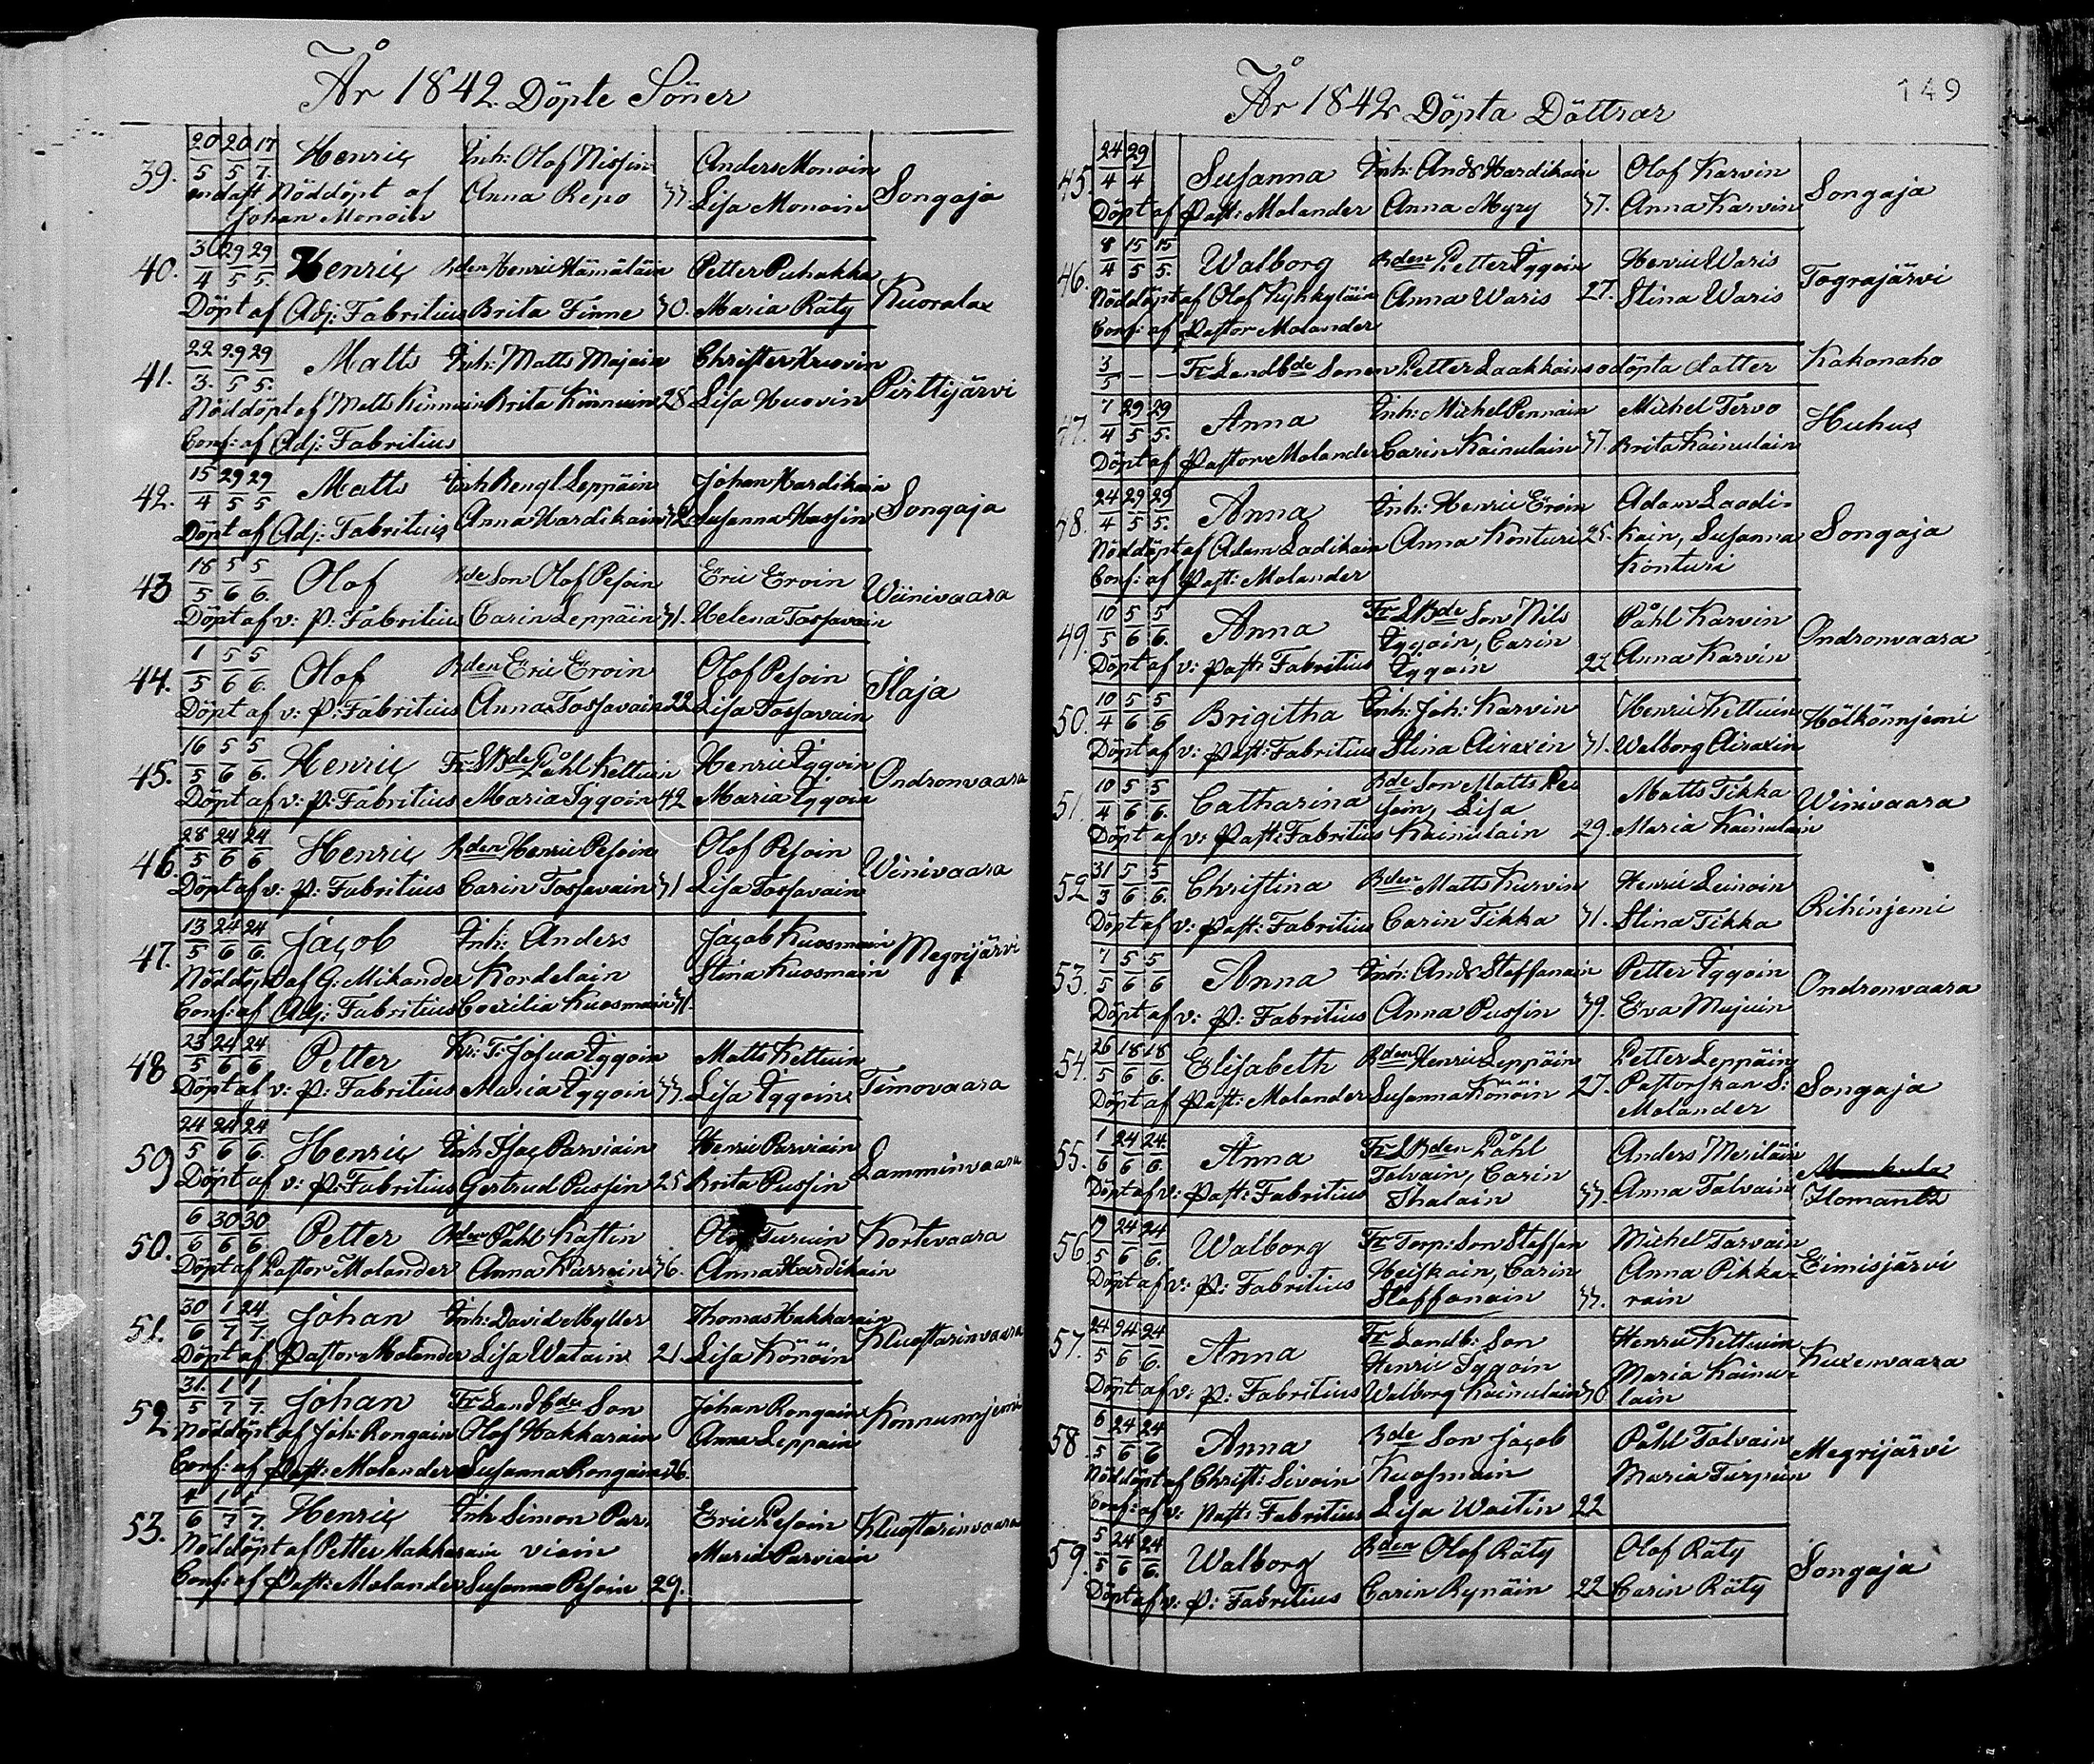 År 1842. Döpte Söner
39. 20/5 20/5 17/7. Henric Inh: Olof Nissin Anders Monoin Songaja
endast Nöddöpt af Anna Repo 33. Lisa Monoin
Johan Monoin
40. 30/4 29/5 29/5. Henric Bden Henric Hämäläin Petter Puhakka Kuoralax
Döpt af Adj: Fabritius Brita Finne 30. Maria Räty
41. 22/3. 29/5 29/5. Matts Inh: Matts Majoin Christer Huovin Pirttijärvi
Nöddöpt af Matts Kinnuin Brita Könnuin 28 Lisa Huovin
Conf: af Adj: Fabritius
42. 15/4 29/5 29/5 Matts Inh Bengt Leppäin Johan Hardikain Songaja
Döpt af Adj: Fabritius Anna Hardikain 32 Susanna Hassin
43 18/5 5/6 5/6. Olof Bde Son Olof Pesoin Eric Eroin Wiinivaara
Döpt af v: P: Fabritius Carin Leppäin 31. Helena Tossavain
44. 1/5 5/6 5/6. Olof Bden Eric Eroin Olof Pesoin Ilaja
Döpt af v: P: Fabritius Anna Tossavain 22 Lisa Tossavain
45. 16/5 5/6 5/6. Henric Fr LBde Påhl Kettuin Henric Iggoin Ondronvaara
Döpt af v: P: Fabritius Maria Iggoin 42 Maria Iggoin
46. 28/5 24/6 24/6 Henric Bden Henric Pesoin Olof Pesoin Winivaara
Döpt af v: P: Fabritius Carin Tossavain 31 Lisa Tossavain
47. 13/5 24/6 24/6. Jacob Inh: Anders Jacob Kuosmain Megrijärvi
Nöddöpt af G: Mikander Kordelain Stina Kuosmain
Conf: af Adj: Fabritius Coecilia Kuosmain 31.
48 23/5 24/6 24/6 Petter Kr: T: Josua Iggoin Matts Kettuin Timovaara
Döpt af v: P: Fabritius Maria Iggoin 33. Lisa Iggoin
509 24/5 24/6 24/6. Henric Inh Isac Parviain Henric Parviain Lamminvaara
Döpt af v: P: Fabritius Gertrud Pussin 25 Brita Pussin
50. 6/6 30/6 30/6 Petter Bden Påhl Kastin Olof Turuin Kortevaara
Döpt af Pastor Molander Anna Kärrein 36. Anna Hardikain
51. 30/6 1/7 24/7. Johan Inh: David Myller Thomas Hakkarain Kluostarinvaara
Döpt af Pastor Molander Lisa Watain 21. Lisa Könöin
52. 31./5 1/7. 1/7. Johan Fr Landbdn Son Johan Rongain Konnunnjemi
Nöddöpt af Joh: Rongain Olof Hakkarain Anna Leppäin
Conf: af Past: Molander Susanna Rongain 26.
53. 4/6 1/7 1/7. Henric Inh Simon Par. Eric Pesoin Kluostarinvaara
Nöddöpt af Petter Hakkarain viain Maria Parviain
Conf: af Past: Molander Susanna Pesoin 29.
År 1842 Döpta Döttrar
149
45. 24/4 29/4 Susanna Inh: Ands Hardikain Olof Karvin Songaja
Döpt af Past: Molander Anna Myry 37. Anna Karvin
46. 8/4 15/5 15/5. Walborg Bden Petter Iggoin Henric Waris Tograjärvi
Nöddöpt af Olof Kyhkyläin Anna Waris 27. Stina Waris
Conf: af Pastor Molander
3/5 — — Fr Landbde Sonen Petter Laakkains odöpta datter Kakonaho
47. 7/4 29/5 29/5. Anna Inh: Michel Pennain Michel Tervo Huhus
Döpt af Pastor Molander Carin Kainulain 37. Brita Kainulain
48. 24/4 29/5 29/5. Anna Inh: Henric Eroin Adam Laadi-
Nöddöpt af Adam Ladikain Anna Konturi 25. kain, Susanna Songaja
Conf: af Past: Molander Konturi
49. 10/5 5/6 5/6. Anna Fr LBde Son Nils Påhl Karvin Ondronvaara
Iggoin, Carin
Döpt af v: Past: Fabritius Iggoin 22 Anna Karvin
50. 10/4 5/6 5/6 Brigitha Inh: Joh: Karvin Henric Kettuin Hölkönnjemi
Döpt af v: Past: Fabritius Stina Airaxin 31. Walborg Airaxin
51. 10/4 5/6 5/6. Catharina Bde Son Matts Pe- Matts Tikka Winivaara
soin, Lisa
Döpt af v: Past: Fabritius Kainulain 29. Maria Kainulain
52 31/3 5/6 5/6. Christina Bden Matts Kurvin Henric Leinoin Rihinjemi
Döpt af v: Past: Fabritius Carin Tikka 31. Stina Tikka
53. 7/5 5/6 5/6 Anna Inh: Ands Staffanain Petter Iggoin Ondronvaara
Döpt af v: P: Fabritius Anna Pussin 39. Eva Mujuin
54. 26/5 18/6 18/6. Elisabeth Bden Henric Leppäin Petter Leppäin
Döpt af Past: Molander Susanna Könöin 27. Pastorskan S: Songaja
Molander
55. 1/6 24/6 24./6. Anna Fr LBden Påhl Anders Meriläin
Talvain, Carin
Döpt af v: Past: Fabritius Ihalain 33. Anna Talvain Ilomants
56 19/5 24/6 24/6. Walborg Fr Torp: Son Staffan Michel Tarvain
Heiskain, Carin Anna Pikka- Eimisjärvi
Döpt af v: P: Fabritius Staffanain 33. rain
57. 24/5 24/6 24/6. Anna Fr Landb: Son Henric Kettuin
Henric Iggoin Maria Kainu- Kuxenvaara
Döpt af v: P: Fabritius Walborg Kainulain 30 lain
58 6/5 24/6 24/6 Anna Bde Son Jacob Påhl Talvain Megrijärvi
Nöddöpt af Christ: Sivoin Kuosmain Maria Turpein
Conf: af v: Past: Fabritius Lisa Waitin 22
59. 5/5 24/6 24/6. Walborg Bden Olof Räty Olof Räty Songaja
Döpt af v: P: Fabritius Carin Rynäin 22 Carin Räty